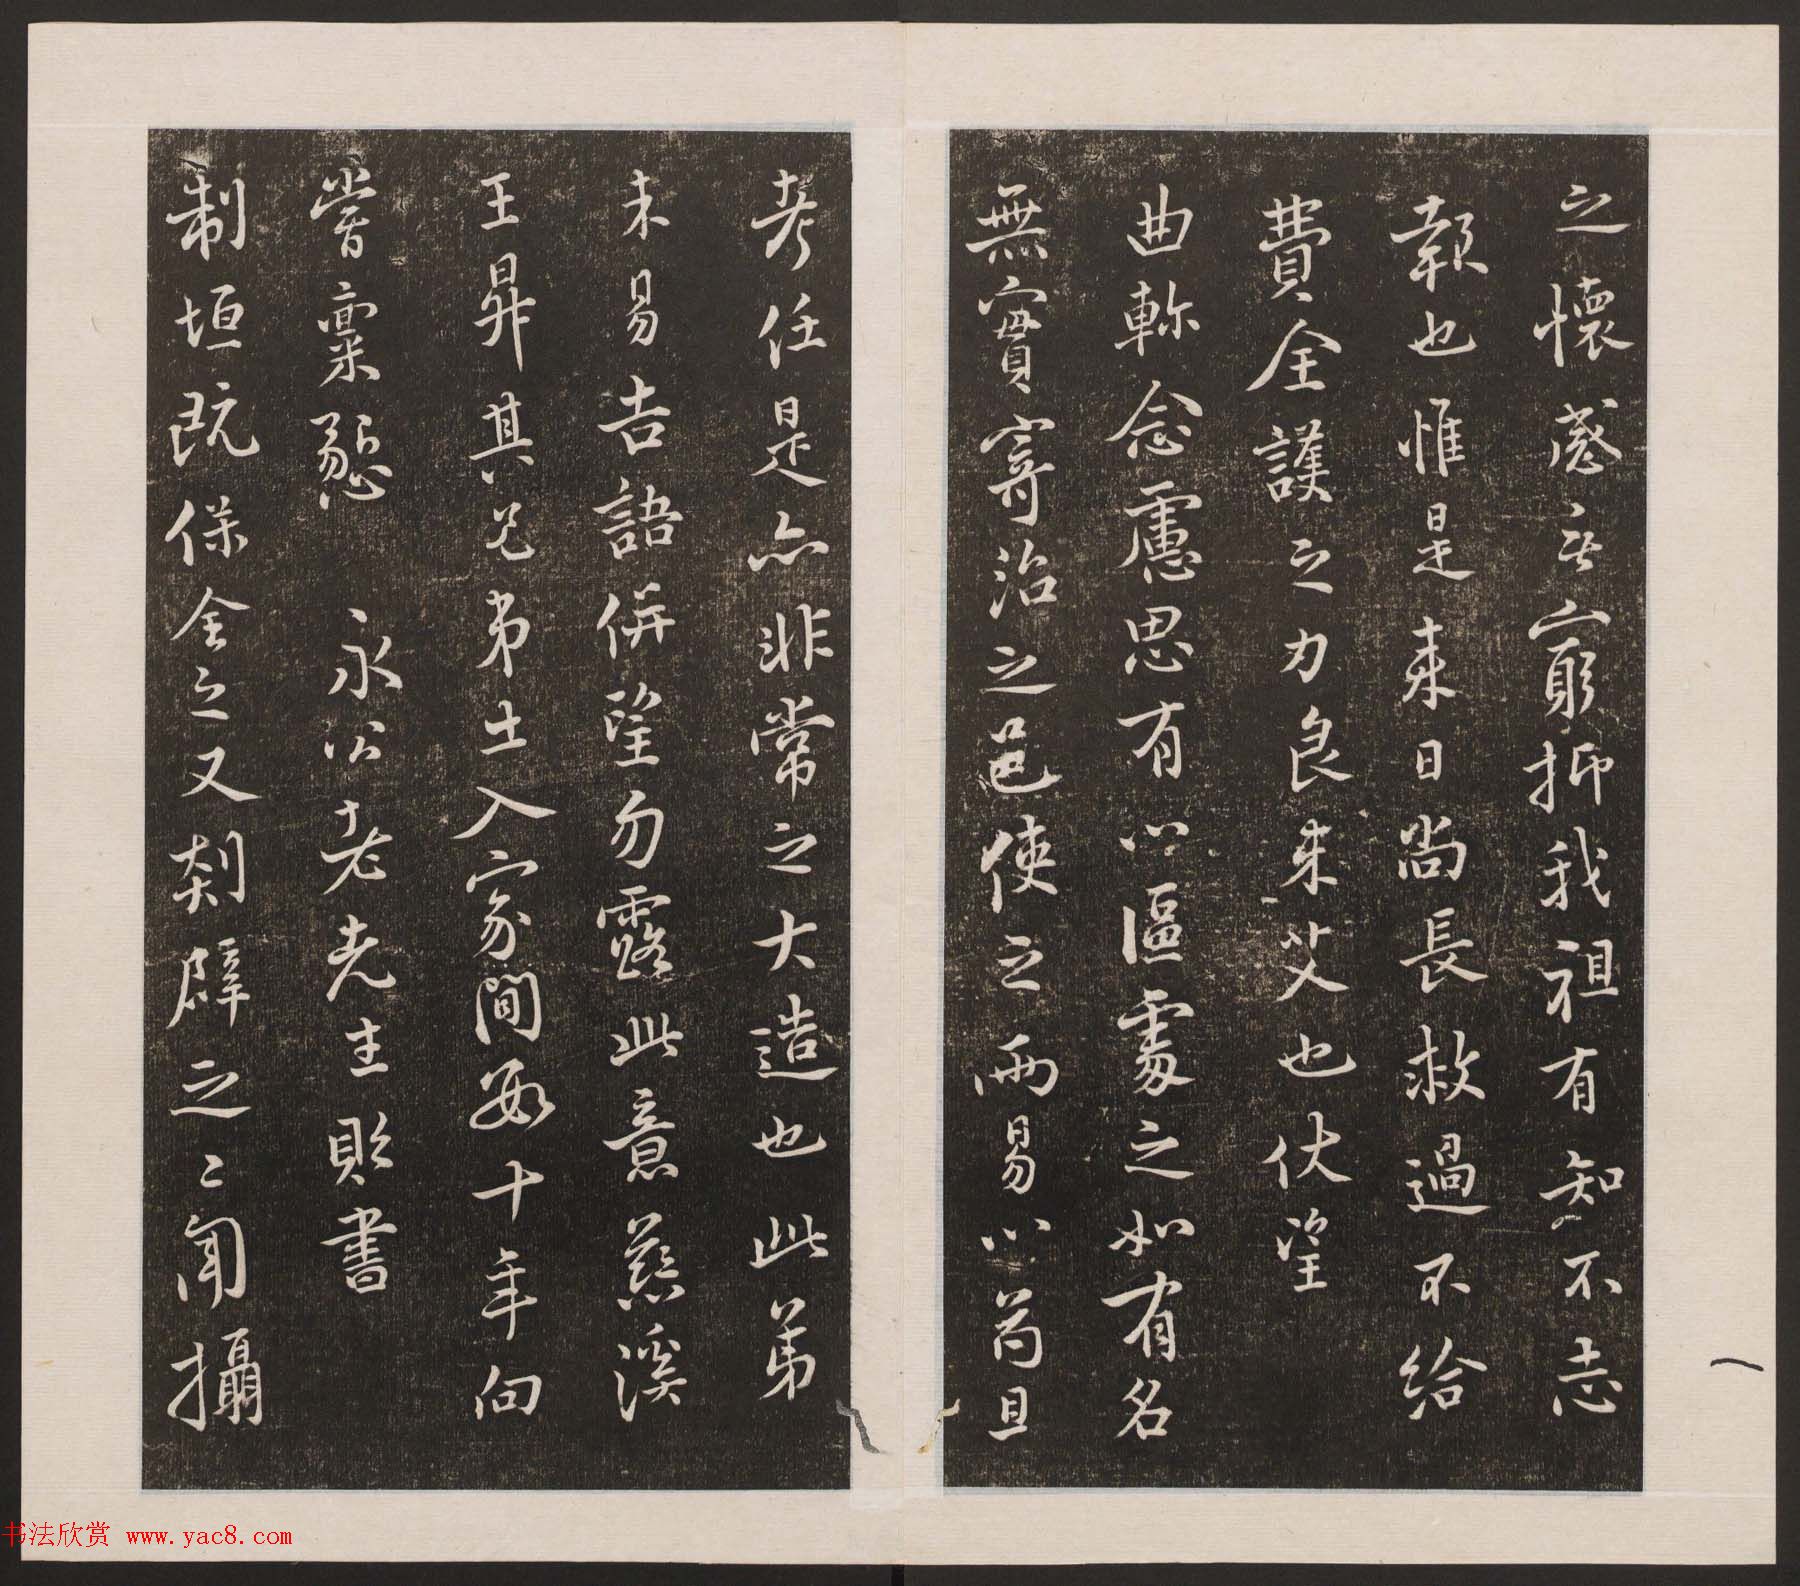 之懷感之窮抑我祖有知不忘
報也惟是來日尚長救過不給
費全護之力良未艾也伏望
曲軫念慮思有以區處之如有名
無實寄治之邑使之兩易以苟旦
考任是亦非常之大造也此第
未易告語併望勿露此意慈溪
王昇其兄弟士入家間每十年向
嘗稟懇 永公老先生貽書
制垣既保全之又剡辟之之聞攝
书法欣赏 www.yac8.com